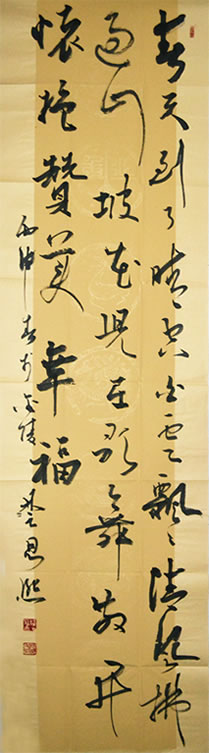 春天到了晴空白云飘飘清风拂
过山坡花儿在歌舞敞开
怀抱赞美幸福
丙申春于金陵 思熙